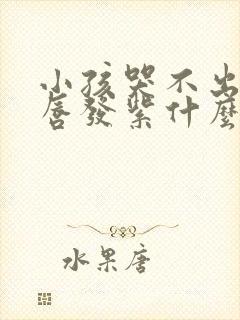 小孩哭不出
唇發紫什麼
水果唐